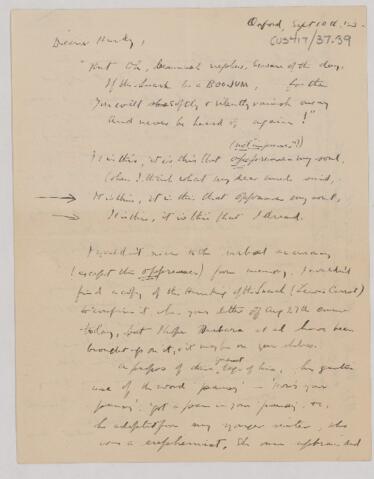 Oxford, Sept 10th,
CUS417/37-39
"But oh, beamish nephew, beware of the day,
If the Snark be a BOOJUM, for then
You will softly & silently vanish away
And never be heard of again!"
It is this, it is this that oppresses my soul,
When I think what my dear uncle said,
→ It is this, it is this that oppresses my soul,
→ It is this, it is this that I dread.
I wouldn't swear to the verbal accuracy
(except the oppresses) from memory. I couldn't
find a copy of the Hunting of the Snark (Lewis Carrol)
to confirm it when your letter of Aug 27th came
today, but I hope Barbara et al have been
brought up on it, & it may be on your shelves.
A propos of
use of the word
he adapted from my younger sister, who
was a euphemist, She once upbraided